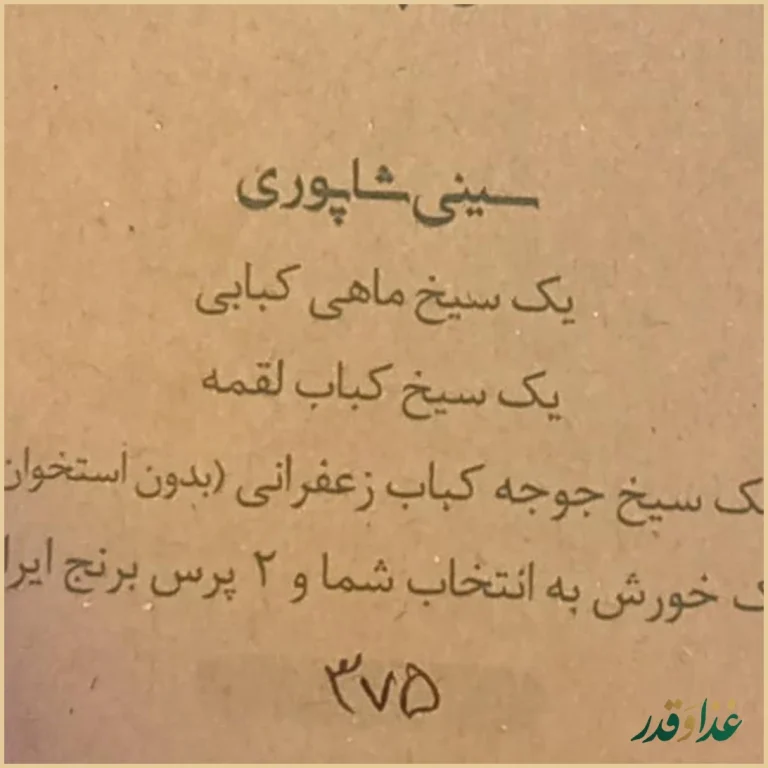 سینی شاپوری
یک سیخ ماهی کبابی
یک سیخ کباب لقمه
سیخ جوجه کباب زعفرانی (بدون استخوان
خورش به انتخاب شما و ۲ پرس برنج
۳۷۵
غذا و قدر